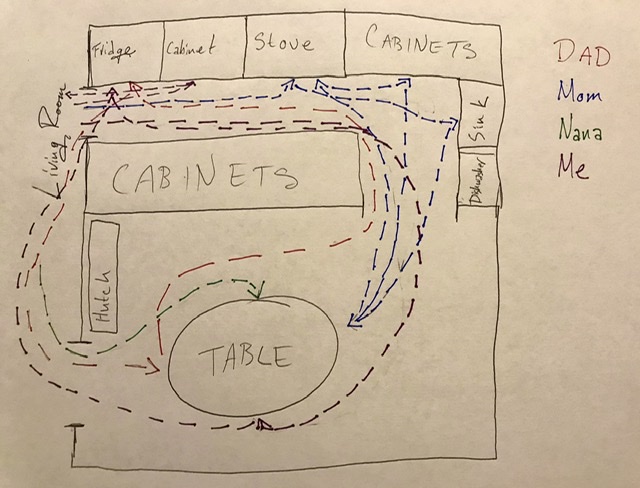 Fridge
Cabinet
Stove
CABINETS
DAD
Mom
Nana
Me
Living Room
Sink
Dishwasher
CABINETS
Hutch
TABLE